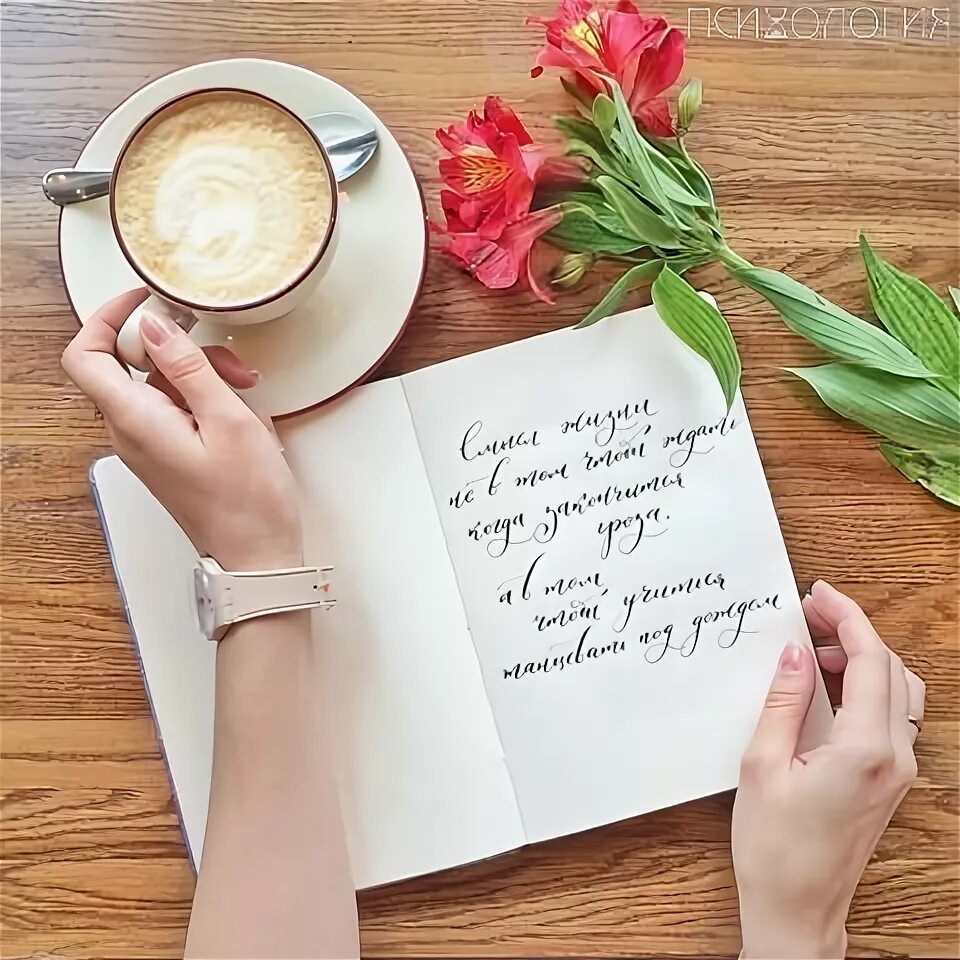 ПСИХОЛОГИЯ
Смысл жизни
не в том чтоб ждать
когда закончится
гроза.
а в том
чтоб учиться
танцевать под дождем